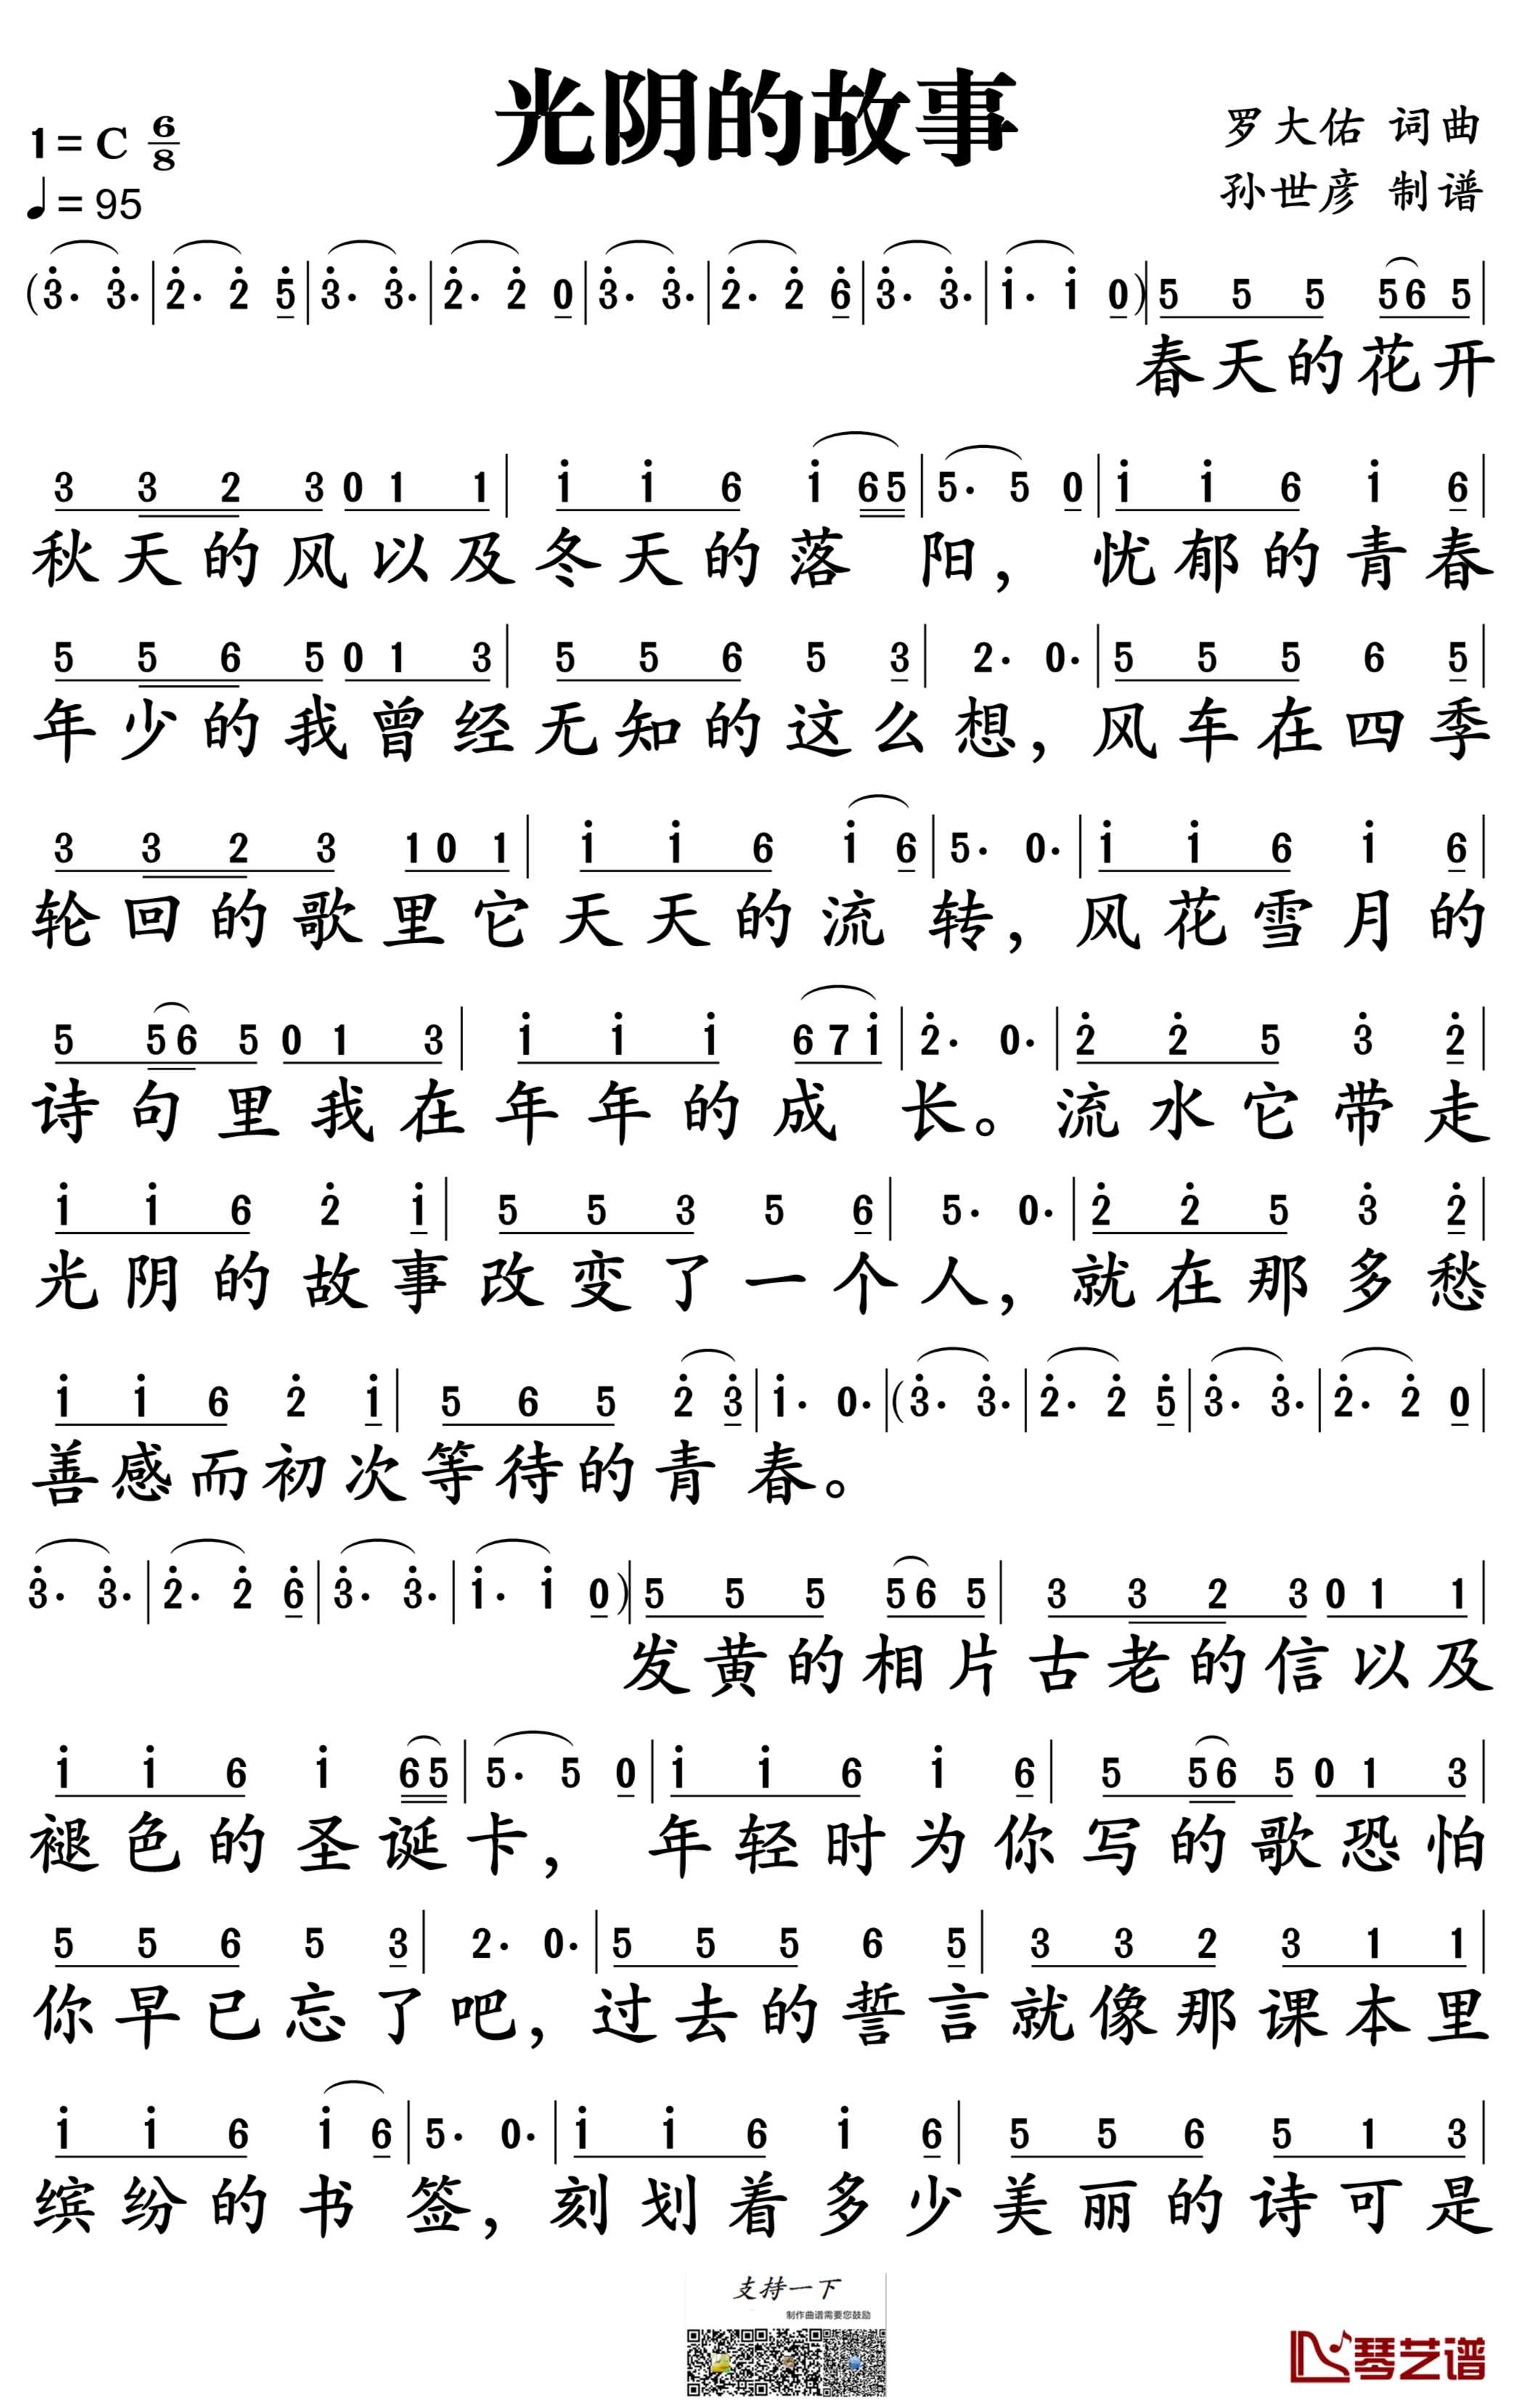 光阴的故事
罗大佑 词曲
孙世彦 制谱
1=C 6/8
♩=95
(3̇· 3̇·|2̇· 2̇ 5̇|3̇· 3̇·|2̇· 2̇ 0|3̇· 3̇·|2̇· 2̇ 6̇|3̇· 3̇·|1̇· 1̇ 0)|5 5 5 56 5|
春天的花开
3 3 2 3 0 1 1|1̇ 1̇ 6 1̇ 65|5· 5 0|1̇ 1̇ 6 1̇ 6|
秋天的风以及冬天的落 阳，忧郁的青春
5 5 6 5 0 1 3|5 5 6 5 3|2· 0·|5 5 5 6 5|
年少的我曾经无知的这么想，风车在四季
3 3 2 3 10 1|1̇ 1̇ 6 1̇ 6|5· 0·|1̇ 1̇ 6 1̇ 6|
轮回的歌里它天天的流 转，风花雪月的
5 56 5 0 1 3|1̇ 1̇ 1̇ 671̇|2̇· 0·|2̇ 2̇ 5 3̇ 2̇|
诗句里我在年年的成 长。流水它带走
1̇ 1̇ 6 2̇ 1̇|5 5 3 5 6|5· 0·|2̇ 2̇ 5 3̇ 2̇|
光阴的故事改变了一个人，就在那多愁
1̇ 1̇ 6 2̇ 1̇|5 6 5 2̇ 3̇|1̇· 0·|(3̇· 3̇·|2̇· 2̇ 5̇|3̇· 3̇·|2̇· 2̇ 0|
善感而初次等待的青春。
3̇· 3̇·|2̇· 2̇ 6̇|3̇· 3̇·|1̇· 1̇ 0)|5 5 5 56 5|3 3 2 3 0 1 1|
发黄的相片古老的信以及
1̇ 1̇ 6 1̇ 65|5· 5 0|1̇ 1̇ 6 1̇ 6|5 56 5 0 1 3|
褪色的圣诞卡，年轻时为你写的歌恐怕
5 5 6 5 3|2· 0·|5 5 5 6 5|3 3 2 3 1 1|
你早已忘了吧，过去的誓言就像那课本里
1̇ 1̇ 6 1̇ 6|5· 0·|1̇ 1̇ 6 1̇ 6|5 5 6 5 1 3|
缤纷的书 签，刻划着多少美丽的诗可是
支持一下
制作曲谱需要您鼓励
琴艺谱